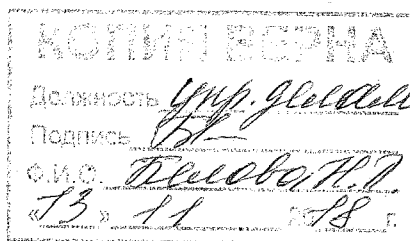 КОПИЯ ВЕРНА
Должность упр. делами
Подпись
Ф.И.О. Белова Н.П.
«13» 11 2018 г.